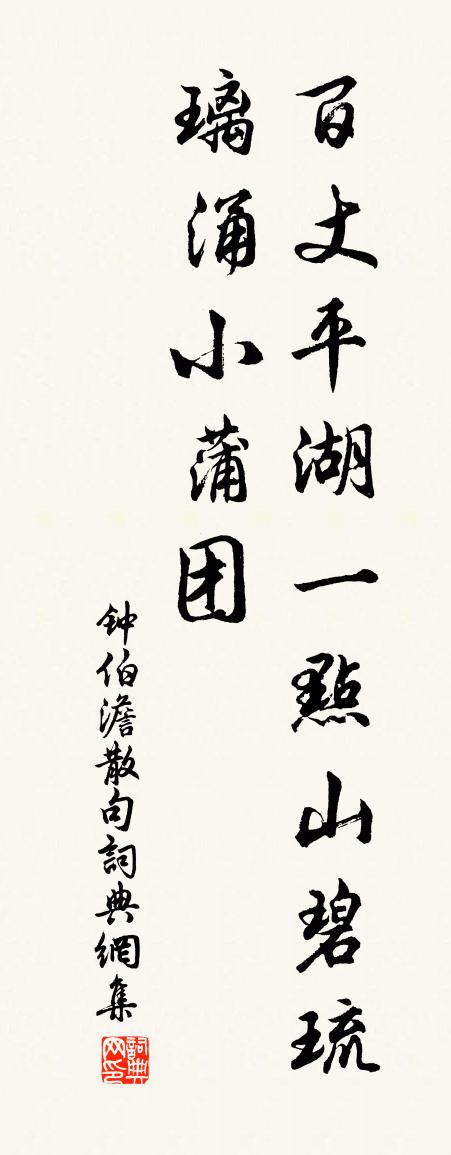 百丈平湖一點山碧琉
璃涌小蒲团
钟伯澹散句詞典網集
詞典网印